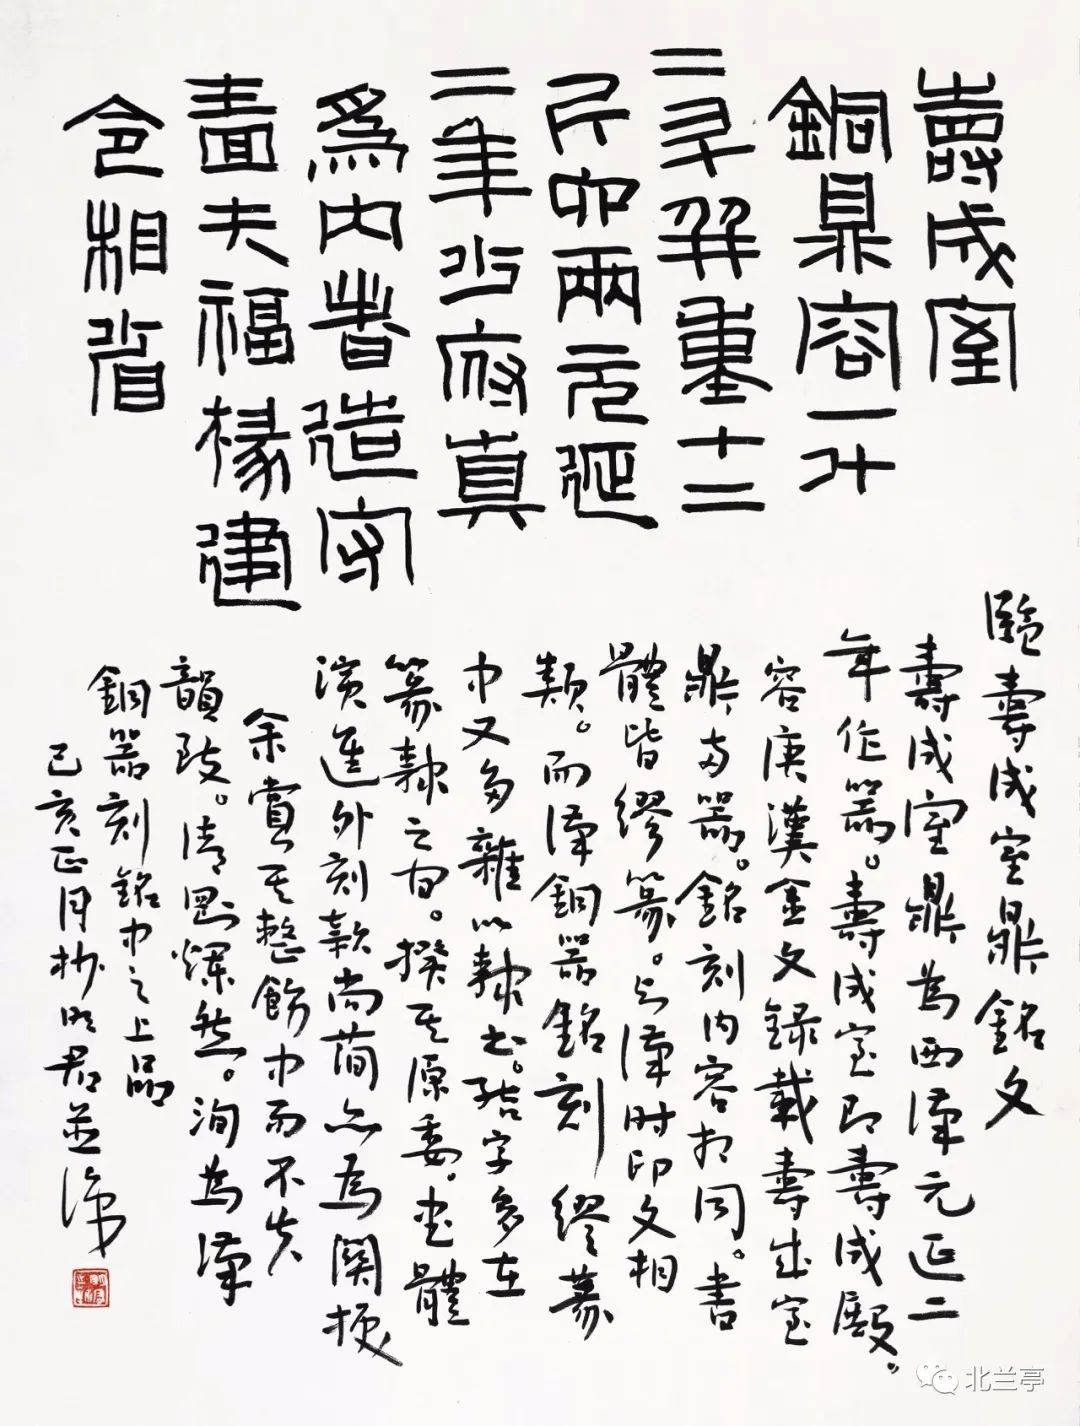 壽成室
銅鼎容一升
二斗升重十二
斤卯兩元延
二年少府真
為內者造守
嗇夫福掾建
令相省
臨壽成室鼎銘文
壽成室鼎為西漢元延二
年作器。壽成室即壽成殿。
容庚漢金文錄載壽成室
鼎两器。銘刻內容相同。書
體皆繆篆。與漢時印文相
類。而漢銅器銘刻繆篆
中又多雜以隸書。結字多在
篆隸之间。揆其原委。書體
演進外刻款尚簡亦為關梗
余賞其整飭中而不失
韻致。清剛爛然。洵為漢
銅器刻銘中之上品
己亥正月抄明君並識
北兰亭